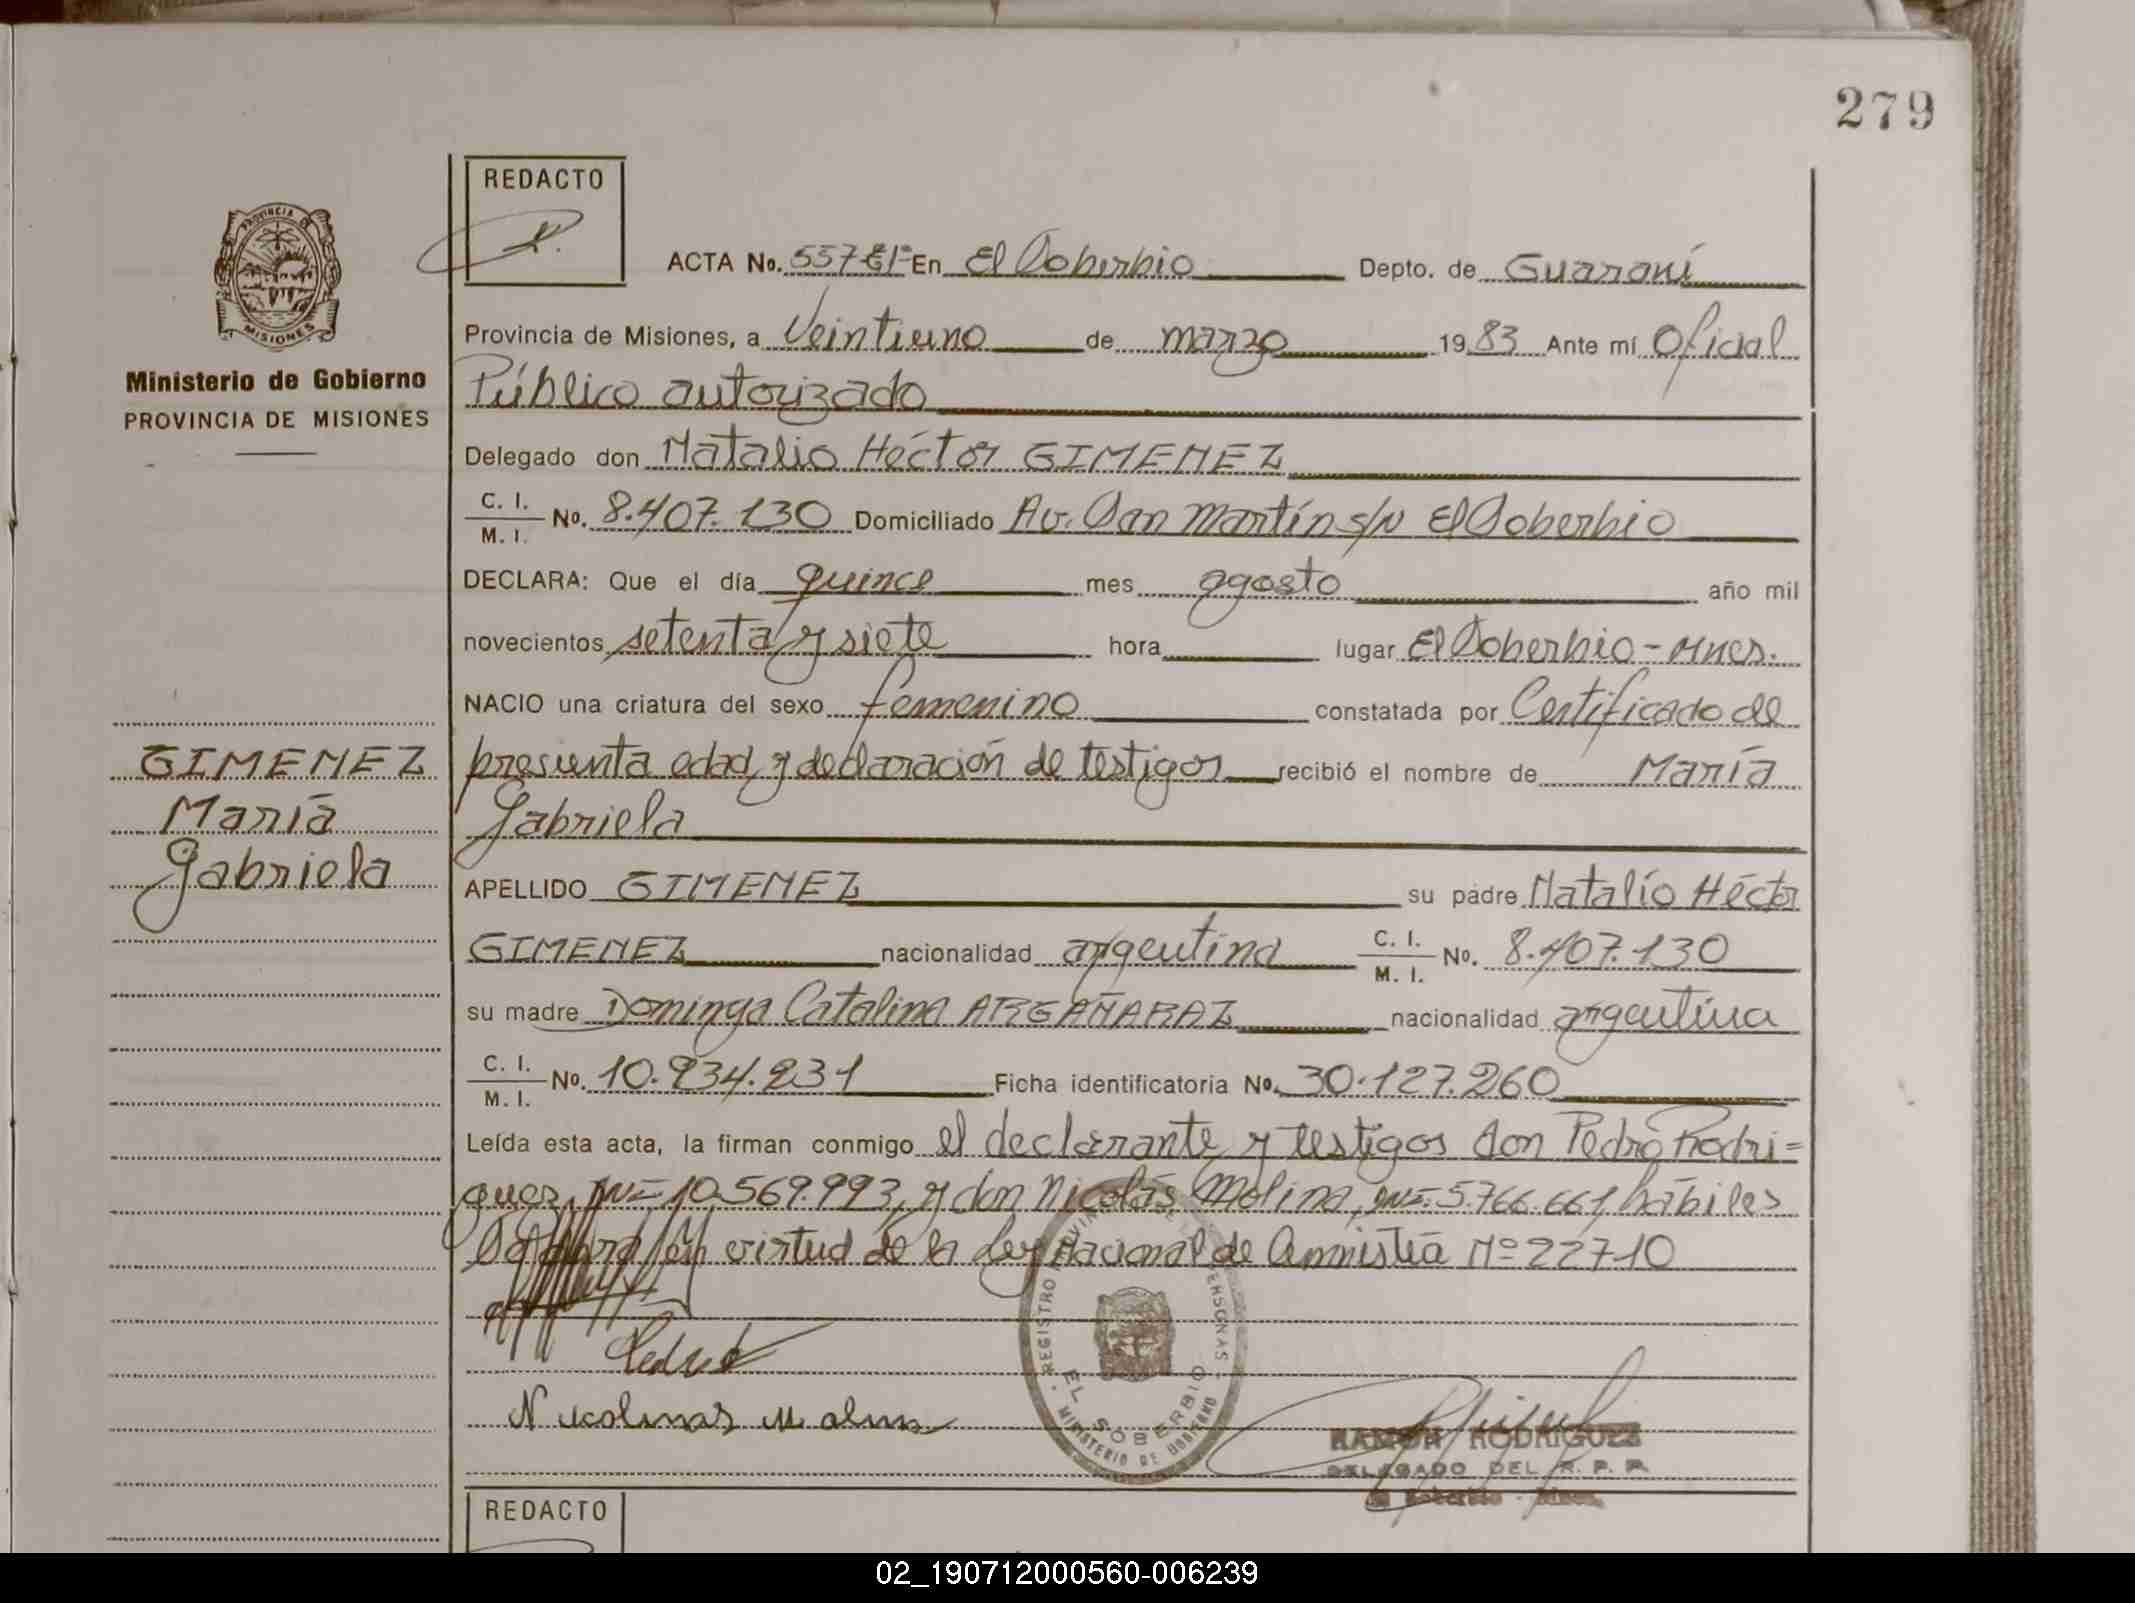 279
REDACTO
ACTA No. 557 En El Soberbio Depto. de Guaraní
PROVINCIA DE
MISIONES
Provincia de Misiones, a Veintiuno de marzo 1983 Ante mí Oficial
Ministerio de Gobierno
Público autorizado
PROVINCIA DE MISIONES
Delegado don Natalio Héctor GIMENEZ
C. I.
M. I. No. 8.407.130 Domiciliado Av. San Martín s/N El Soberbio
DECLARA: Que el día quince mes agosto año mil
novecientos setenta y siete hora lugar El Soberbio - Mnes.
NACIO una criatura del sexo femenino constatada por Certificado de
GIMENEZ
presunta edad y declaración de testigos recibió el nombre de María
María
Gabriela
Gabriela
APELLIDO GIMENEZ su padre Natalio Héctor
GIMENEZ nacionalidad argentina C. I.
M. I. No. 8.407.130
su madre Dominga Catalina ARGAÑARAZ nacionalidad argentina
C. I.
M. I. No. 10.934.931 Ficha identificatoria No. 30.127.260
Leída esta acta, la firman conmigo el declarante y testigos don Pedro Rodri=
guez, 10.569.993, y don Nicolás Molina, 5.766.661, hábiles
en virtud de la Ley Nacional de Amnistía Nº 22710
REGISTRO PROVINCIAL DE LAS PERSONAS
EL SOBERBIO
MINISTERIO DE GOBIERNO
Pedro
RAMON RODRIGUEZ
DELEGADO DEL R. P. P.
El Soberbio - Mnes.
REDACTO
02_190712000560-006239